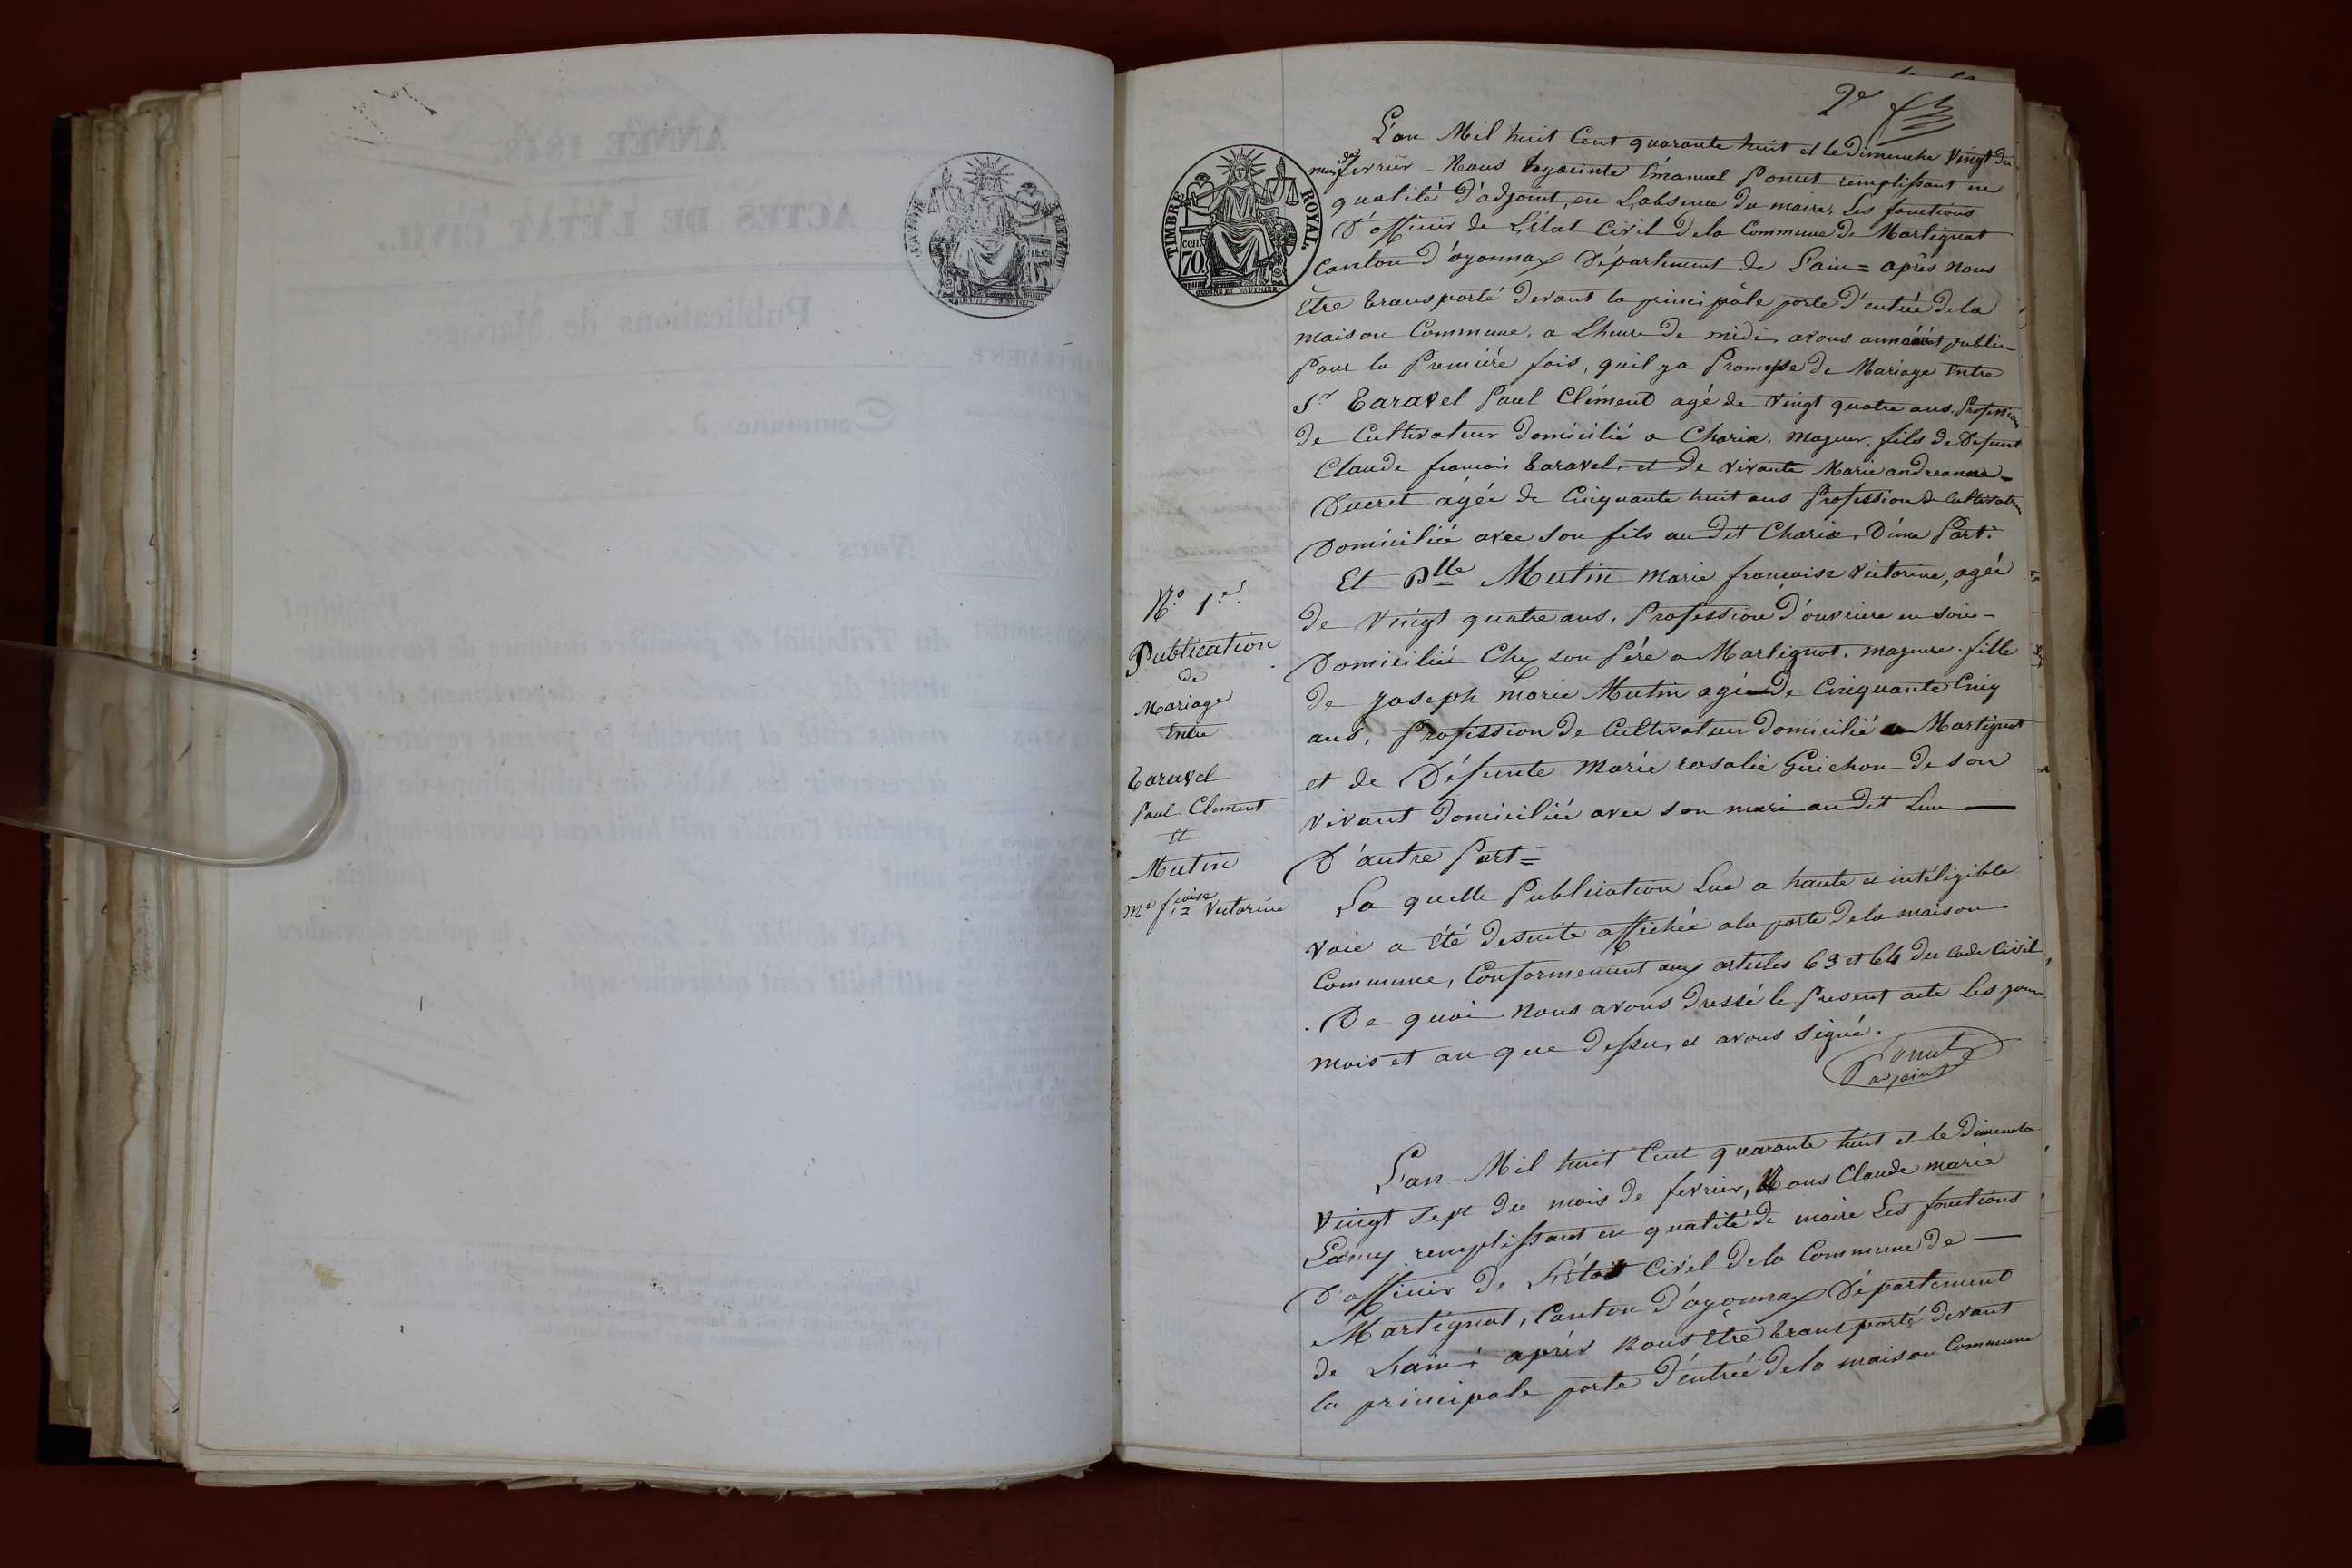 TIMBRE ROYAL.
cen. 70
2e
L'an Mil huit Cent quarante huit et le Dimanche Vingt du
mois de fevrier - Nous hyacinte Émanuel Ponut remplissant en
qualité d'adjoint, en L'absence du maire, Les fonctions
D'officier de L'État Civil de la Commune de Martignat
Canton d'oyonnax Département de L'ain = après nous
être transporté devant la principale porte d'entrée de la
maison Commune, a Lheure de midi, avons publié
Pour la Première fois, quil ya Promesse de Mariage Entre
Sr Taravel Paul Clément agé de Vingt quatre ans, Profession
de Cultivateur domicilié a Charix. mageur. fils de Defunt
Claude francois Taravel, et de vivante Marie andreanne -
Ducret agée de Cinquante huit ans Profession de Cultivatrice
Domiciliée avec son fils au dit Charix, D'une Part.
Et Dlle Mutin Marie francoise Victorine, agée
de Vingt quatre ans, Profession d'ouvriere en soie -
Domiciliée Chez son Père a Martignat. mageure. fille
de Joseph Marie Mutin agé de Cinquante Cinq
ans, Profession de Cultivateur domicilié a Martignat
et de Défunte Marie rosalie Guichon de son
vivant domiciliée avec son mari au dit Lieu
D'autre Part =
La quelle Publication Lue a haute et intéligible
voie a été desuite affichée a la porte de la maison
Commune, Conformement aux articles 63 et 64 du Code Civil,
. De quoi Nous avons dressé le Present acte Les jour
mois et an que dessu, et avons signé.
Ponut
adjoint
No 1er
Publication
de
Mariage
Entre
Taravel
Paul Clement
Et
Mutin
Me fcoise Victorine
L'an Mil huit Cent quarante huit et le Dimanche
Vingt Sept du mois de fevrier, Nous Claude marie
Lamy remplissant en qualité de maire Les fonctions
D'officier de L'État Civil de la Commune de
Martignat, Canton d'oyonnax Département
de L'ain, après Nous être transporté devant
la principale porte d'entrée de la maison Commune